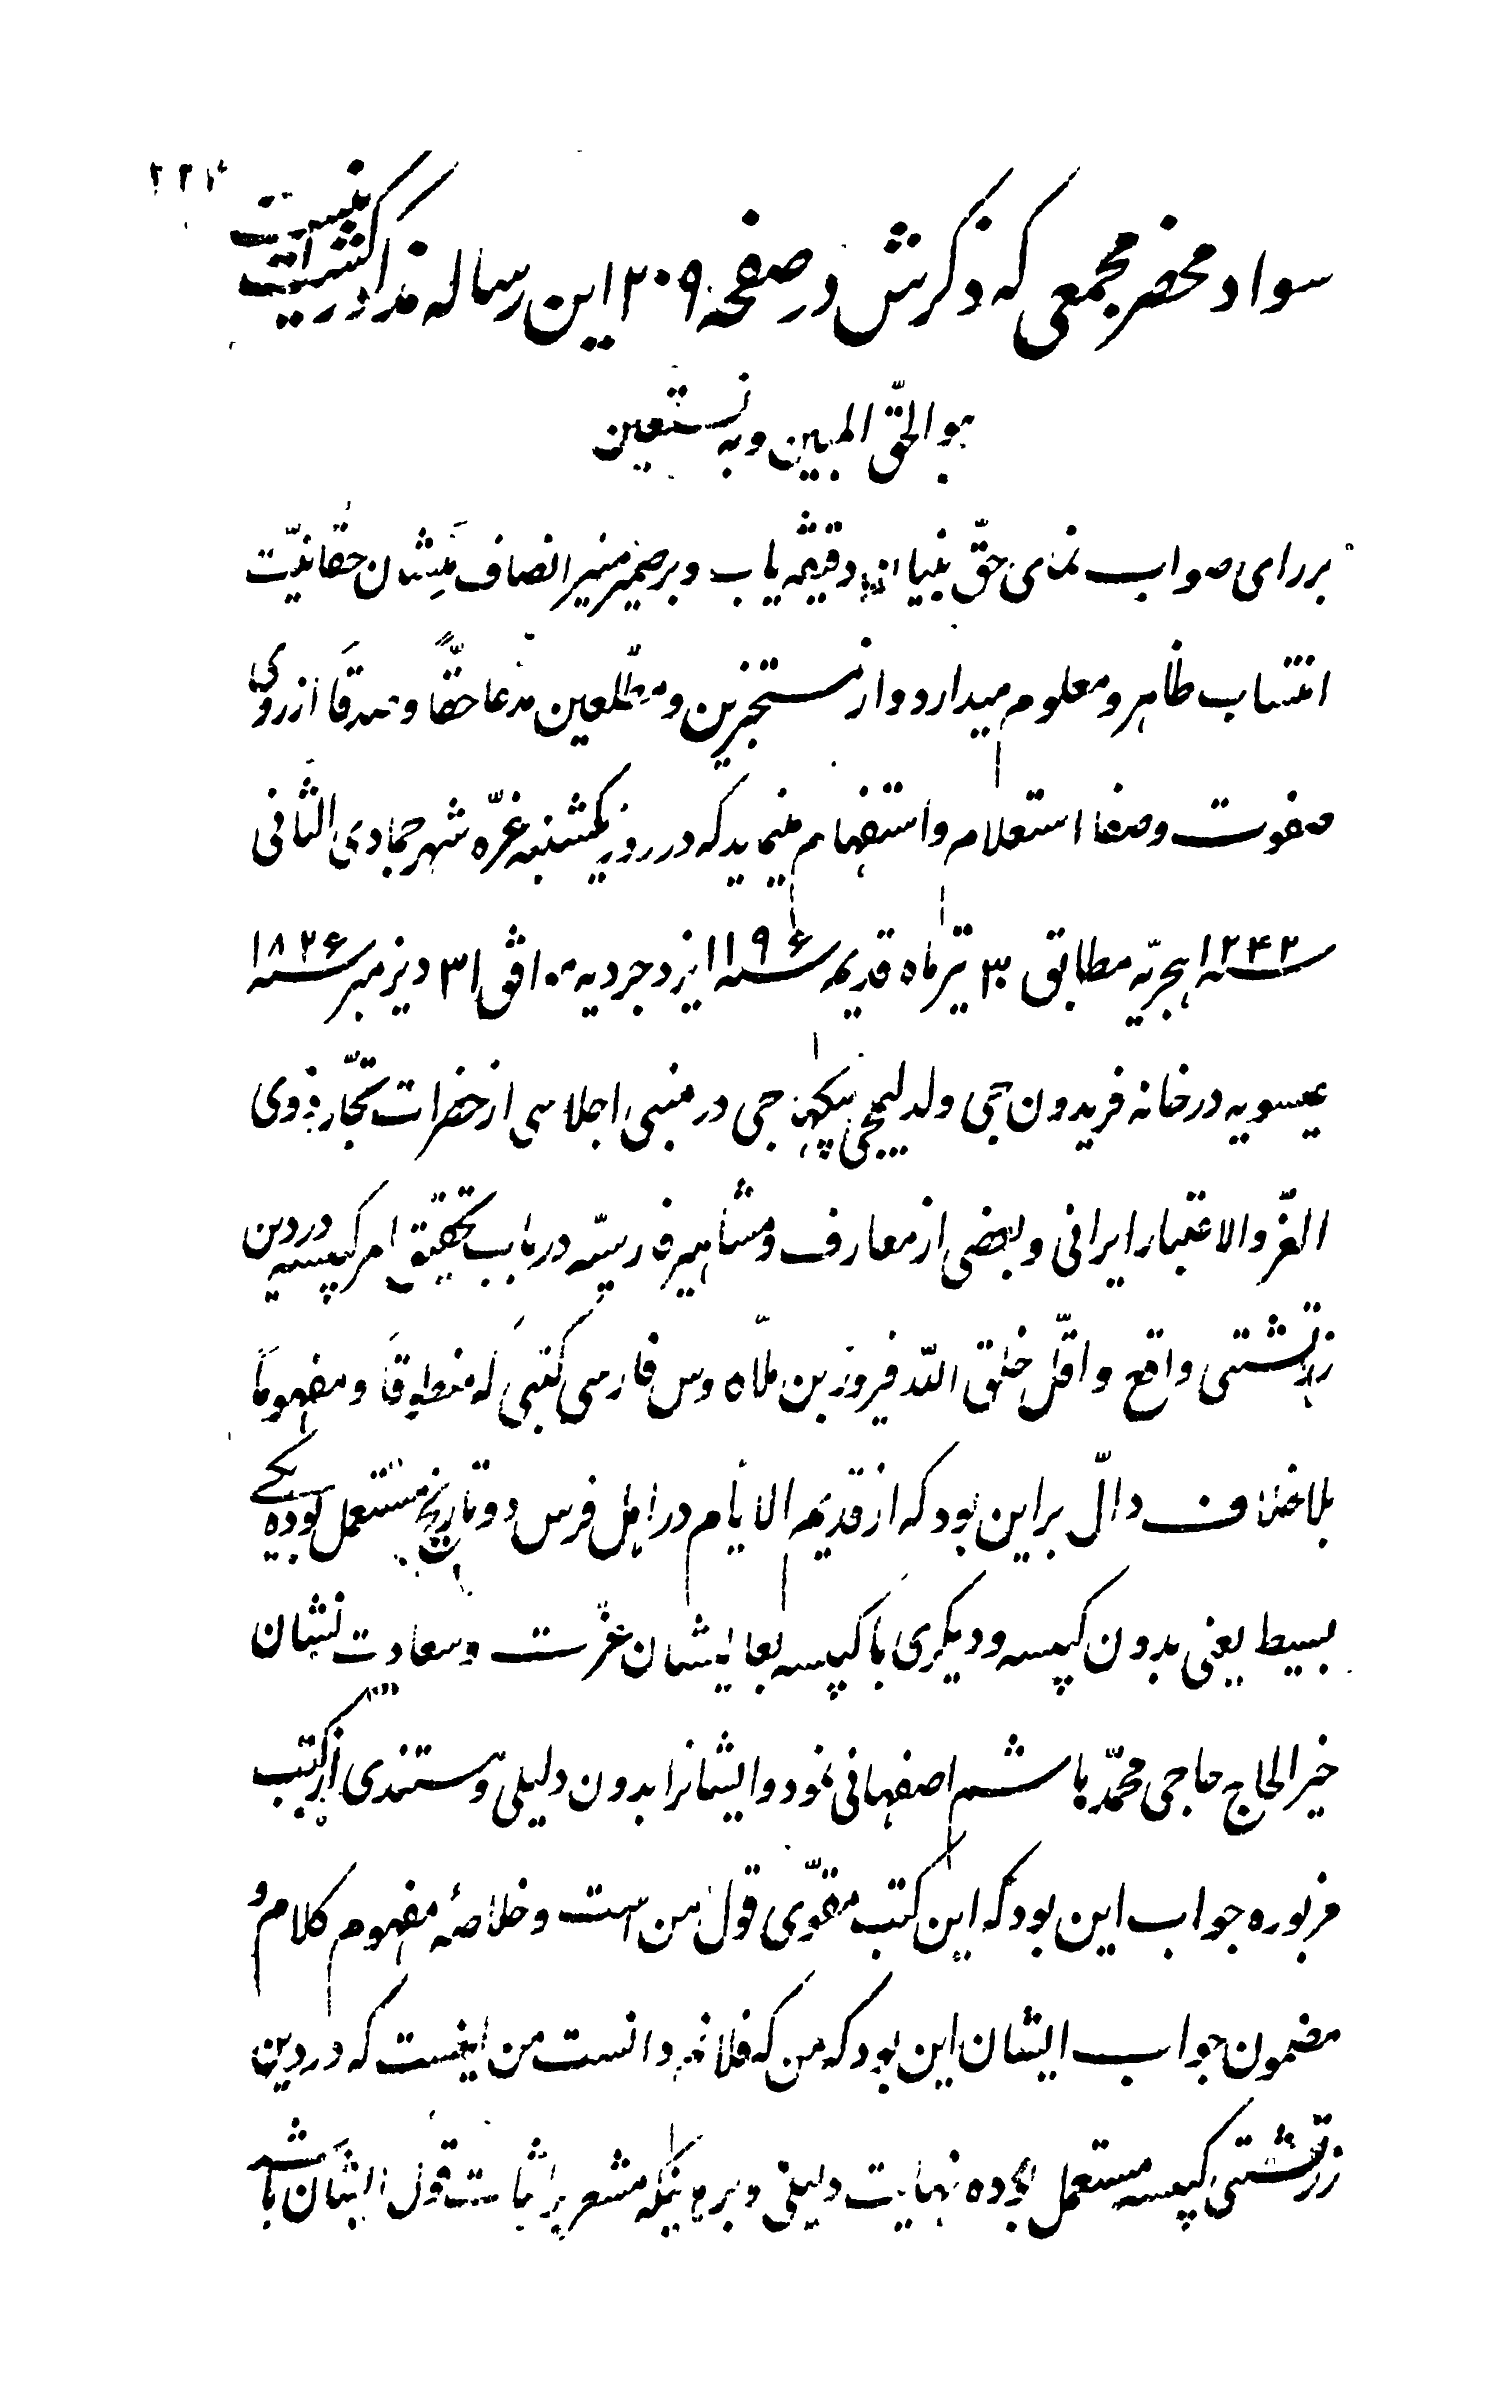 سواد محضر مجمعی که ذکرش در صفحه ۲۰۹ این رساله مذکور شده است اینست
هو الحقّ المبین و به نستعین
بر رای صواب نمای حقّ بنیان دقیقه یاب و بر ضمیر منیر انصاف نشان حقّانیّت
انتساب ظاهر و معلوم میدارد و از مستخبرین و مطّلعین مدعا حقّاً و صدقاً از روی
صفوت و صفا استعلام و استفهام مینماید که در روز یکشنبه غرّه شهر جمادی الثانی
سنه ۱۲۴۲ هجریّه مطابق ۳ تیر ماه قدیم سنه ۱۱۹۶ یزدجردیه موافق ۳۱ دیزمبر سنه ۱۸۲۶
عیسویه در خانه فریدون جی ولد لیمجی بیکهن جی در منبی اجلاسی از حضرات تجّار ذوی
العزّ والاعتبار ایرانی و بعضی از معارف و مشاهیر فارسیّه در باب تحقیق امر کپیسه در دین
زرتشتی واقع و اقلّ خلق الله فیروز بن ملّا کاوس فارسی کتبی که منطوقاً و مفهوماً
بلا خلاف دالّ بر این بود که از قدیم الایّام در اهل فرس دو تاریخ مستعمل بوده یکی
بسیط یعنی بدون کپیسه و دیگری با کپیسه بعالیشان عزّت و سعادت نشان
خیر الحاج حاجی محمّد هاشم اصفهانی نمود و ایشانرا بدون دلیلی و مستندی از کتب
مزبوره جواب این بود که این کتب مقوّی قول من است و خلاصهٔ مفهوم کلام و
مضمون جواب ایشان این بود که من که فلانم دانست من اینست که در دین
زرتشتی کپیسه مستعمل بوده نهایت دلیلی و برهانیکه مشعر بر اثبات قول ایشان باشد